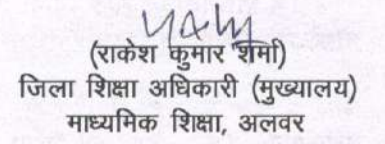 (राकेश कुमार शर्मा)
जिला शिक्षा अधिकारी (मुख्यालय)
माध्यमिक शिक्षा, अलवर